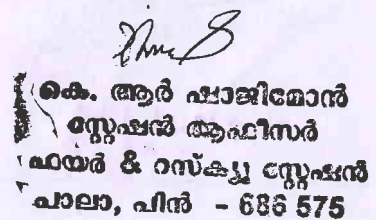 കെ. ആർ ഷാജിമോൻ
സ്റ്റേഷൻ ആഫീസർ
ഫയർ & റസ്ക്യൂ സ്റ്റേഷൻ
പാലാ, പിൻ - 686 575